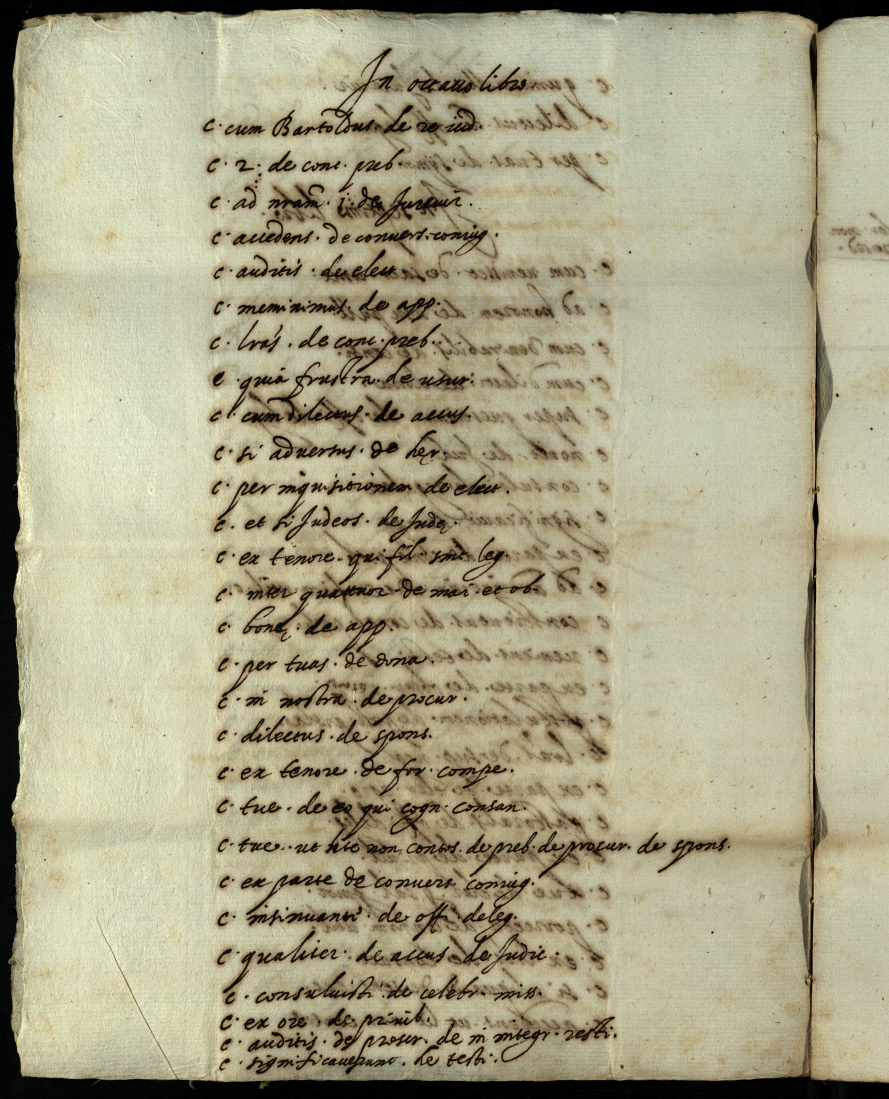 In octavo libro
c. cum Bartoldus. de re iud.
c. 2. de conc. preb.
c. ad nram. i. de Jureiur.
c. accedens. de convers. coniug.
c. auditis. de elect.
c. meminimus. de app.
c. lras. de conc. preb.
c. quia frustra. de usur.
c. cum dilectus. de accus.
c. si adversus. de her.
c. per inquisitionem. de elect.
c. et si Judeos. de Jude.
c. ex tenore. qui fil. sint leg.
c. inter quattuor. de mai. et ob.
c. bone. de app.
c. per tuas. de dona.
c. in nostra. de procur.
c. dilectus. de spons.
c. ex tenore. de for. compe.
c. tue. de eo qui cogn. consan.
c. tue. ut lite non contes. de preb. de procur. de spons.
c. ex parte de convers. coniug.
c. insinuante. de offi. deleg.
c. qualiter. de accus. de Judic.
c. consuluisti. de celebr. miss.
c. ex ore. de privil.
c. auditis. de procur. de in integr. resti.
c. significaverunt. de testi.